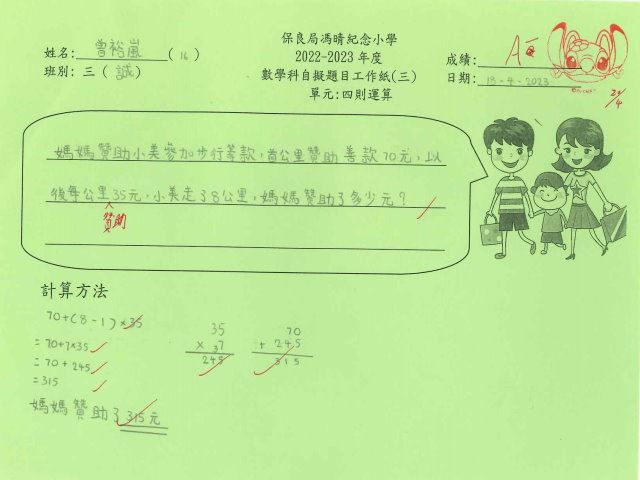 保良局馮晴紀念小學
2022-2023 年度
數學科自擬題目工作紙(三)
單元:四則運算
姓名: 曾裕嵐 ( 16 )
班別: 三 ( 誠 )
成績: A
日期: 18-4-2023
21/4
媽媽贊助小美參加步行籌款,首公里贊助善款70元,以
後每公里35元,小美走了8公里,媽媽贊助了多少元?
贊助
計算方法
70+(8-1)×35
=70+7×35
=70+245
=315
35
× 37
245
70
+ 245
315
媽媽贊助了315元